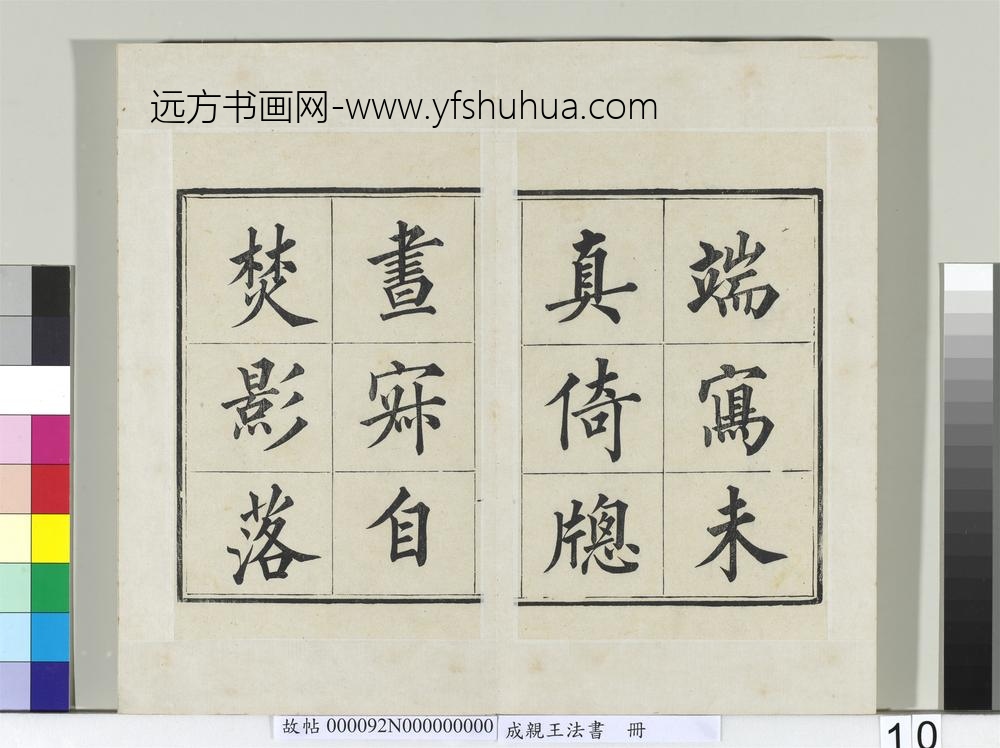 远方书画网-www.yfshuhua.com
端寫未
真倚牕
晝寐自
焚影落
故帖 000092N000000000
成親王法書 冊
10